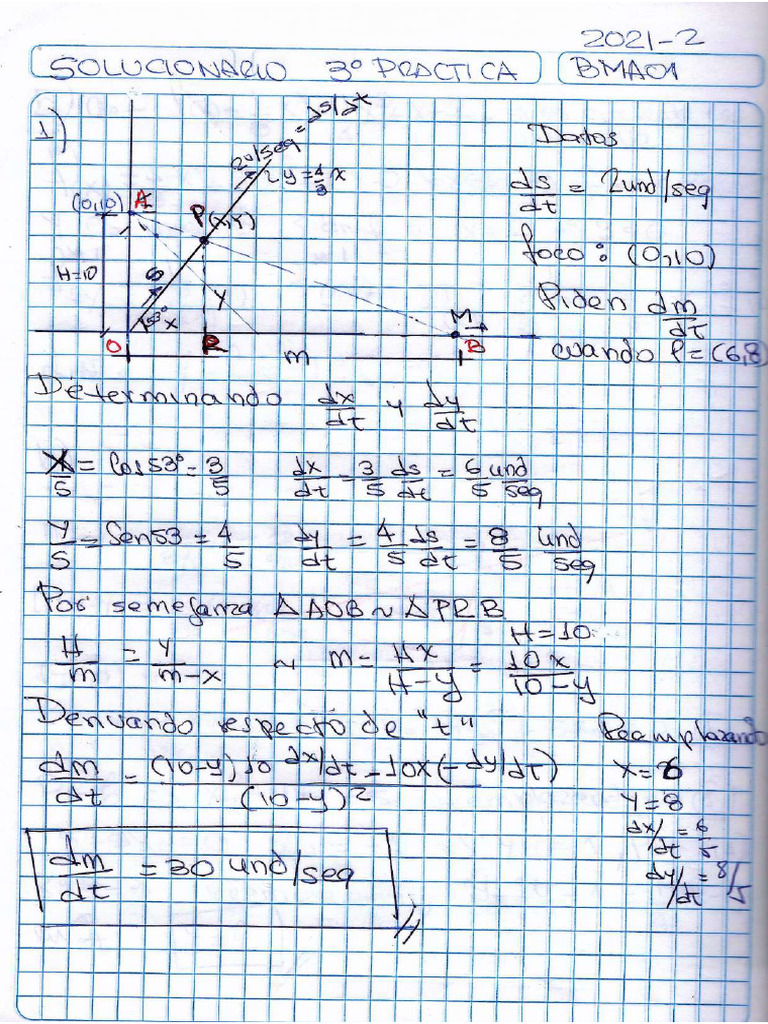 2021-2
SOLUCIONARIO 3° PRACTICA BMA01
1)
2u/seg = ds/dt
y = 4/3 x
(0,10) A
P(x,y)
H=10
S
53° x
y
O R m M B
Datos
ds/dt = 2und/seg
foco: (0,10)
Piden dm/dt
cuando P=(6,8)
Determinando dx/dt y dy/dt
x/s = Cos53° = 3/5 dx/dt = 3/5 ds/dt = 6/5 und/seg
y/s = Sen53 = 4/5 dy/dt = 4/5 ds/dt = 8/5 und/seg
Por semejanza △AOB ~ △PRB
H/m = y/m-x ~ m = Hx/H-y = 10x/10-y
H=10
Derivando respecto de "t"
dm/dt = (10-y)10 dx/dt - 10x(-dy/dt)/(10-y)2
dm/dt = 30 und/seg
Reemplazando
x=6
y=8
dx/dt = 6/5
dy/dt = 8/5